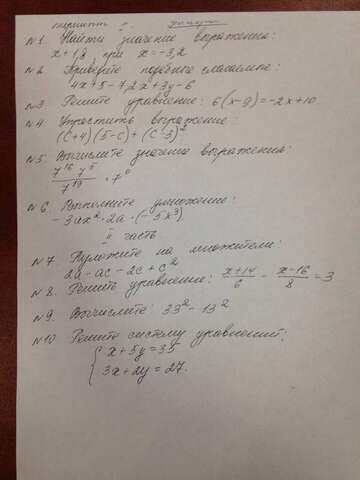 вариант II
N 1. Найти значение выражения:
x + 1,8 при x = -3,2
N 2. Приведите подобные слагаемые:
4x + 5 - 7,2x + 3y - 6
N 3. Решите уравнение: 6(x-9) = -2x + 10
N 4. Упростить выражение:
(c+4)(5-c) + (c-3)²
N 5. Вычислите значение выражения:
7¹⁶ · 7⁵ / 7¹⁹ · 7⁰
N 6. Выполните умножение:
-3ax² · 2a · (-5x³)
II часть
N 7. Разложите на множители:
2a - ac - 2c + c²
N 8. Решить уравнение: (x+14)/6 - (x-16)/8 = 3
N 9. Вычислите: 33² - 13²
N 10. Решите систему уравнений:
{ x + 5y = 35
3x + 2y = 27.